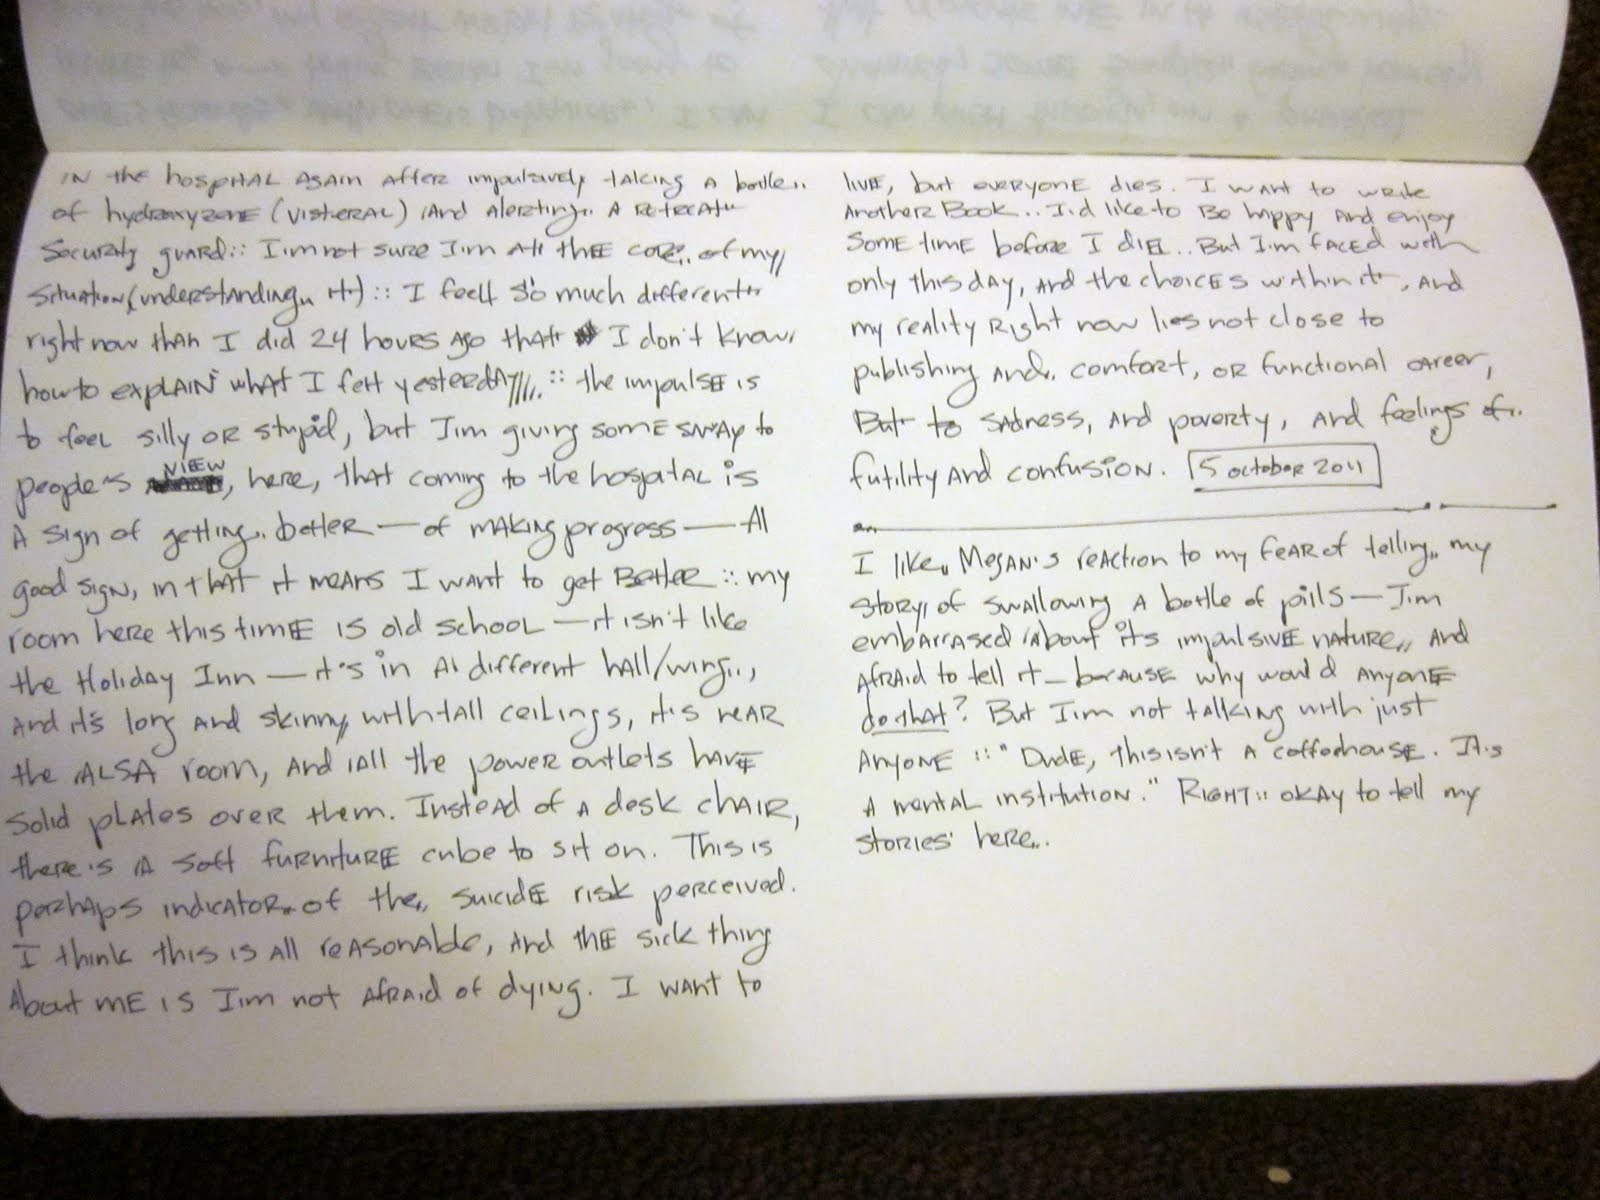 in the hospital again after impulsively taking a bottle..
of hydroxyzone (visteral) and alerting.. a retreat
security guard:: I'm not sure I'm at the core.. of my
situation (understanding.. it) :: I feel so much different
right now than I did 24 hours ago that I don't know
how to explain what I felt yesterday.. :: the impulse is
to feel silly or stupid, but I'm giving some sway to
people's view, here, that coming to the hospital is
a sign of getting.. better — of making progress — A
good sign, in that it means I want to get better :: my
room here this time is old school — it isn't like
the Holiday Inn — it's in a different hall/wing..,
and it's long and skinny with tall ceilings, it's near
the ALSA room, and all the power outlets have
solid plates over them. Instead of a desk chair,
there's a soft furniture cube to sit on. This is
perhaps indicator.. of the.. suicide risk perceived.
I think this is all reasonable, and the sick thing
about me is I'm not afraid of dying. I want to
live, but everyone dies. I want to write
another book.. I'd like to be happy and enjoy
some time before I die.. But I'm faced with
only this day, and the choices within it, and
my reality right now lies not close to
publishing and.. comfort, or functional career,
But to sadness, and poverty, and feelings of..
futility and confusion. 5 october 2011
I like.. Megan's reaction to my fear of telling.. my
story, of swallowing a bottle of pills — I'm
embarrased about its impulsive nature.. and
afraid to tell it — because why would anyone
do that? But I'm not talking with just
anyone :: "Dude, this isn't a coffeehouse. It's
a mental institution." Right :: okay to tell my
stories here..